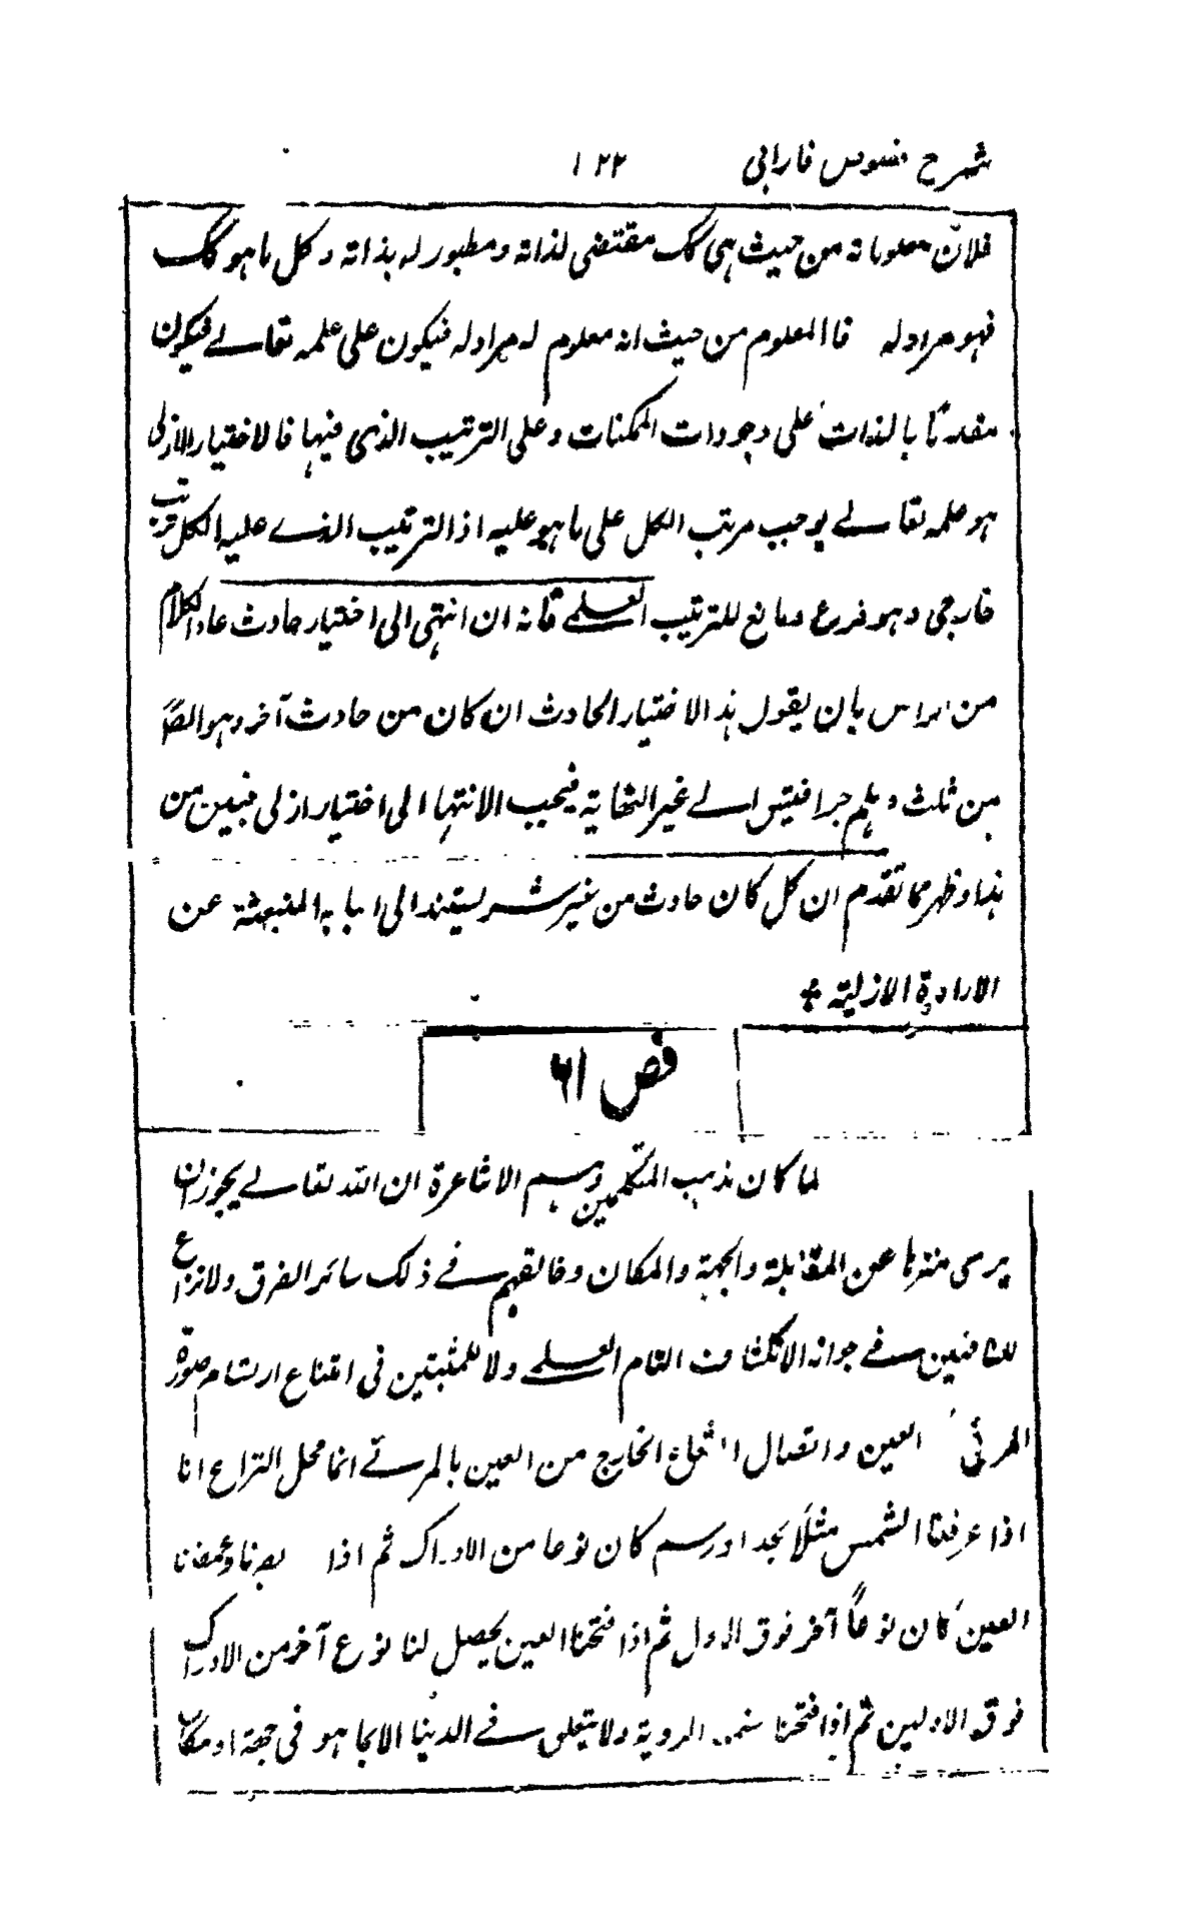 شرح فصوص فارابی ۱۲۲
فلانّ معلوماته من حيث هى كك مقتضى لذاته و مطبور له بذاته وكل ما هو كك
فهو مراد له فاالمعلوم من حيث انه معلوم له مراد له فيكون على علمه تعالے فيكون
متقدمًا بالذات على وجودات الممكنات وعلى الترتيب الذى فيها فالاختيار الازلى
هو علمه تعالے يوجب مرتب الكل على ما هو عليه اذ الترتيب الذے عليه الكل ترتيب
خارجى وهو فرع و مانع للترتيب العلمے فانه ان انتهى الى اختيار حادث عاد الكلام
من الراس بان يقول هذا الاختيار الحادث ان كان من حادث آخر وهو ايضًا
من ثلث وهلم جرا فيتس الے غير النهاية فيجب الانتهاء الى اختيار ازلى فبين من
هذا وظهر مما تقدم ان كل كان حادث من غير شر يستند الى اسبابه المنبعثة عن
الارادة الازلية
فص ۶۱
لما كان مذهب المتكلمين وهم الاشاعرة ان الله تعالے يجوز ان
يرى منزها عن المقابلة والجهة والمكان وخالفهم فے ذلك سائر الفرق ولا نزاع
للنافين فے جواز الانكشاف التام العلمے ولا للمثبتين فى امتناع ارتسام صورة
المرئى العين واتصال الشعاع الخارج من العين بالمرئے انما محل النزاع انا
اذا عرفنا الشمس مثلًا بحد او رسم كان نوعا من الادراك ثم اذا بصرنا وغمضنا
العين كان نوعًا آخر فوق الاول ثم اذا فتحنا العين يحصل لنا نوع آخر من الادراك
فوق الاولين ثم اذا فتحنا الروية ولا يتعلق فے الدنيا الا بما هو فى جهة او مكان